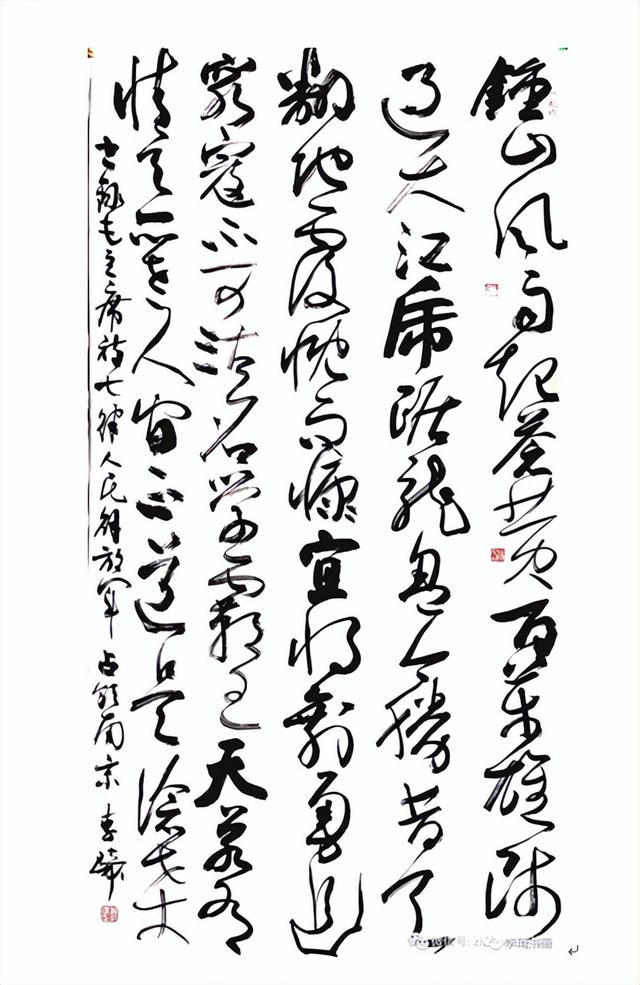 鐘山风雨起苍黄百万雄师
过大江虎踞龙盘今勝昔天
翻地覆慨而慷宜将剩勇追
穷寇不可沽名学霸王天若有
情天亦老人间正道是滄桑
书录毛主席诗七律人民解放军占领南京 李